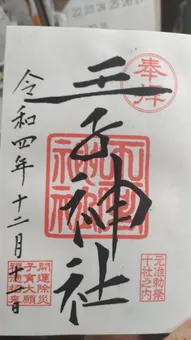 奉拝
王子神社
令和四年十二月十一日
元准勅祭
十社之内
開運除災
子育大願